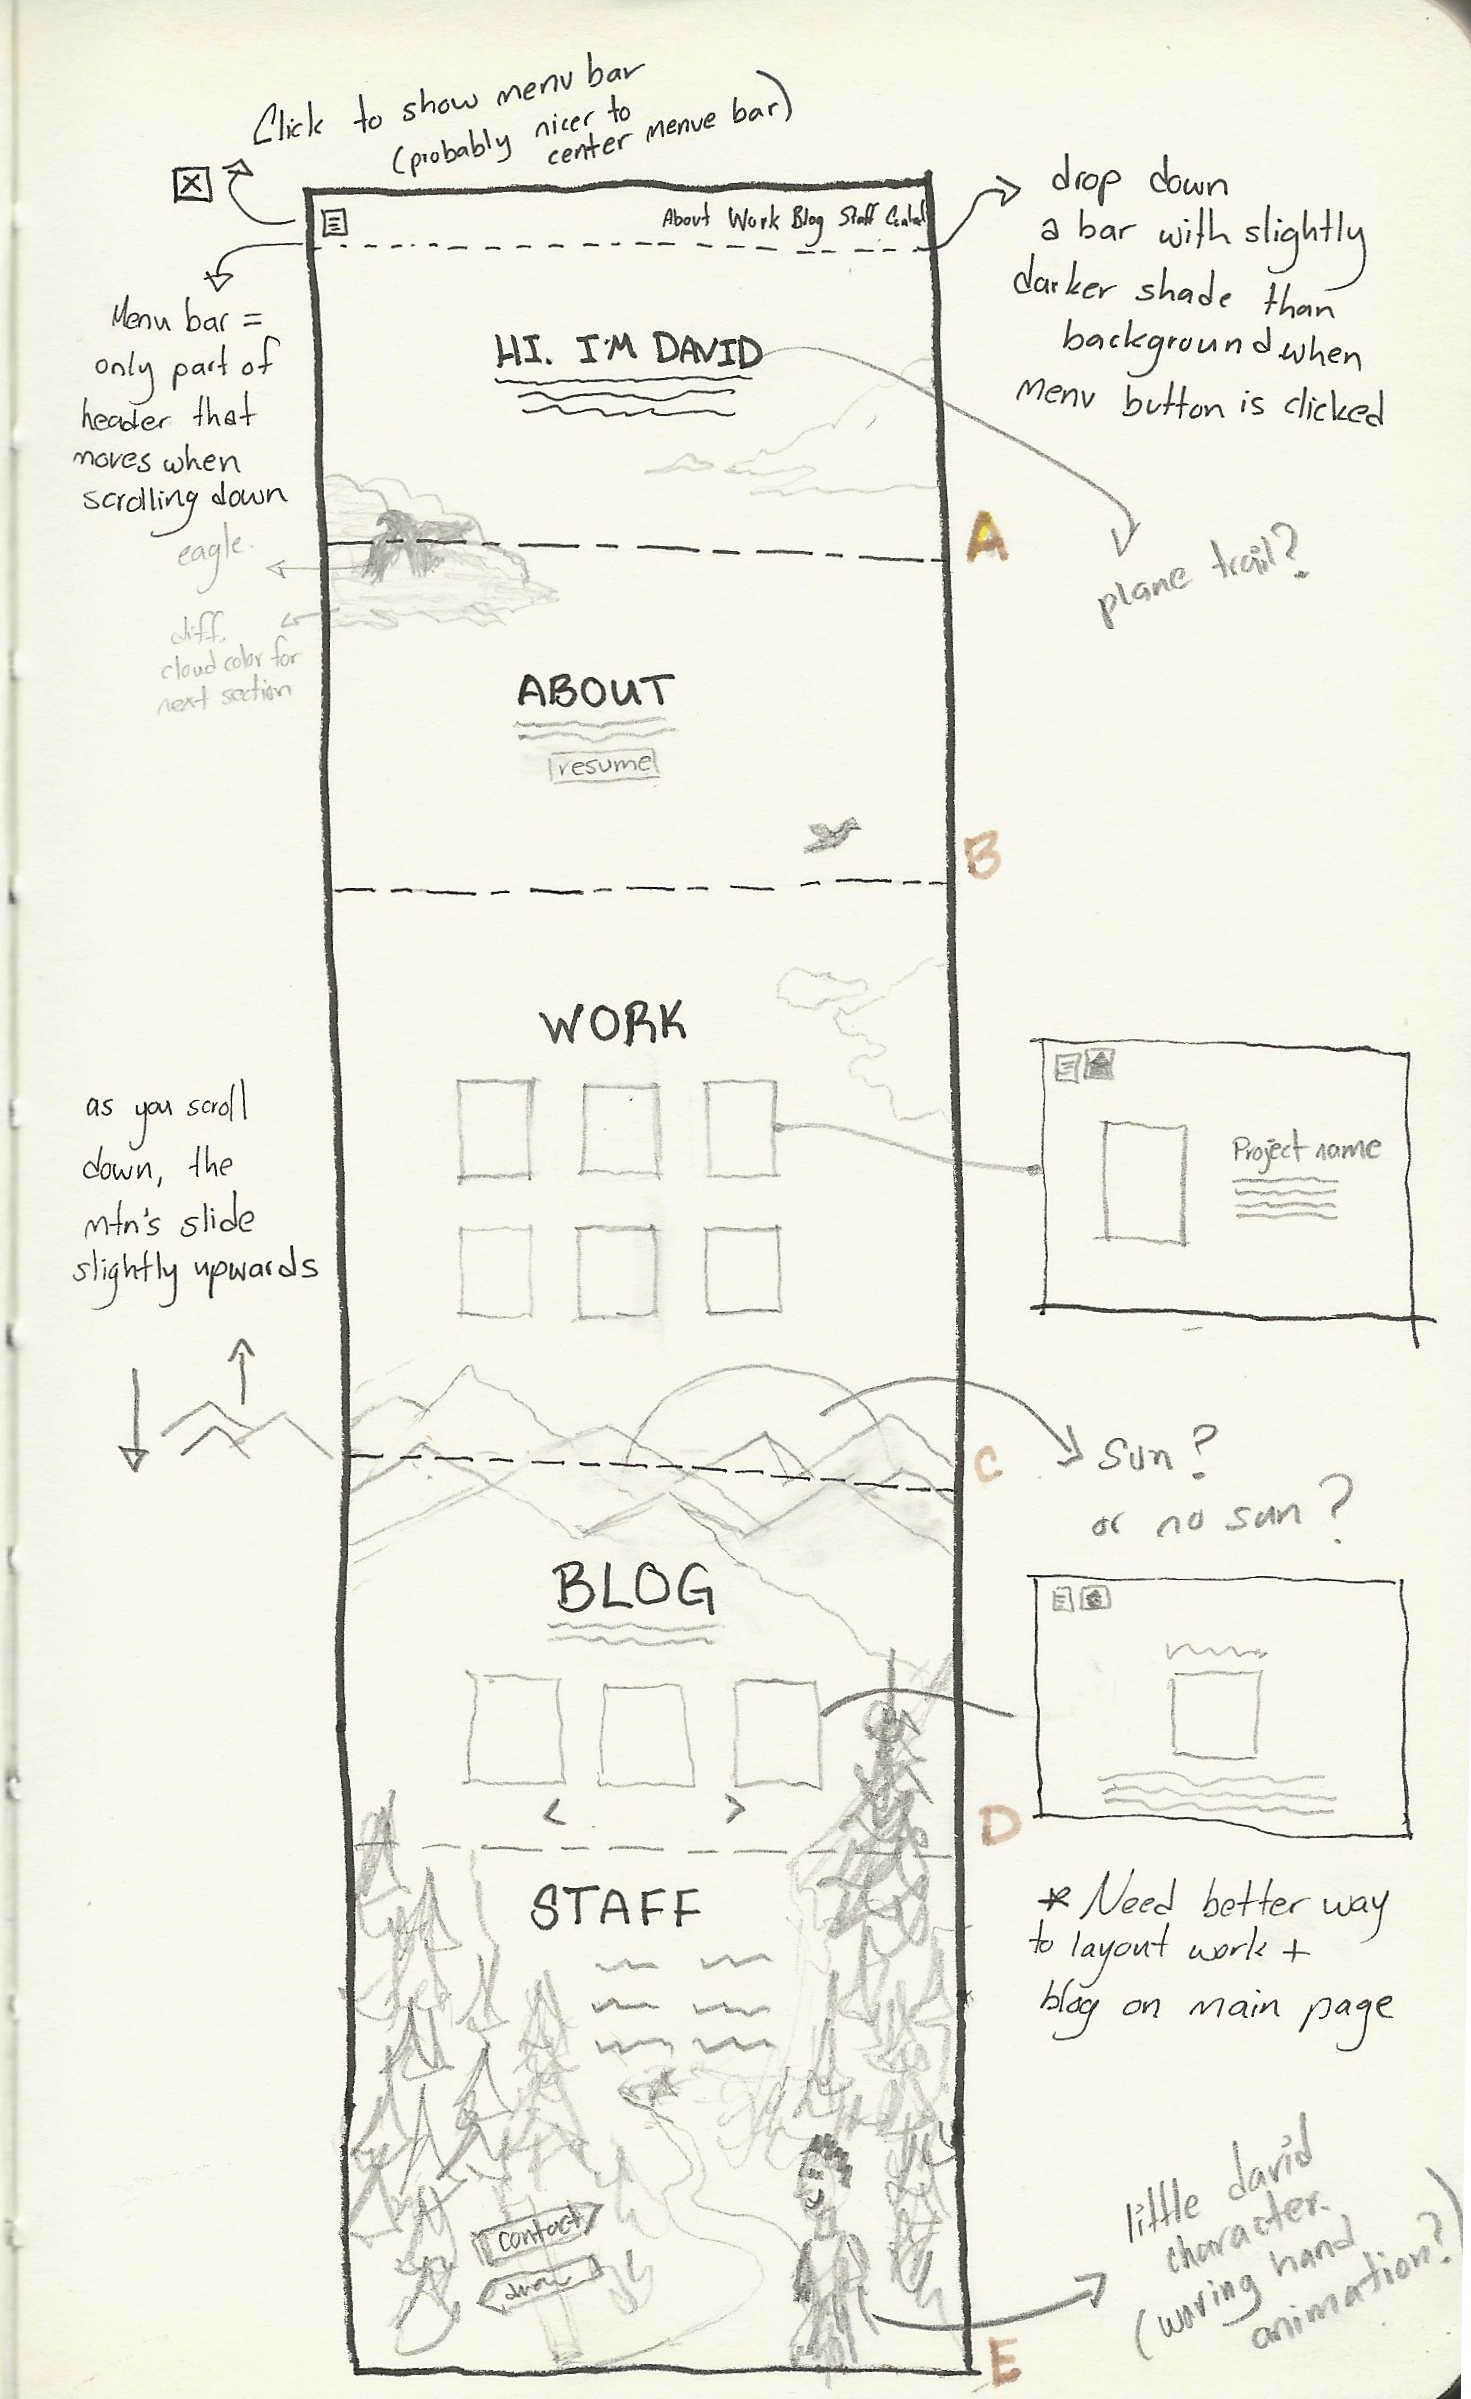 Click to show menu bar
(probably nicer to
center menue bar)
About Work Blog Staff
drop down
a bar with slightly
darker shade than
background when
menu button is clicked
Menu bar =
only part of
header that
moves when
scrolling down
HI. I'M DAVID
eagle.
A
plane trail?
diff.
cloud color for
next section
ABOUT
resume
B
WORK
as you scroll
down, the
mtn's slide
slightly upwards
Project name
C
Sun?
or no sun?
BLOG
< >
D
STAFF
* Need better way
to layout work +
blog on main page
contact
little david
character.
(waving hand
animation?)
E